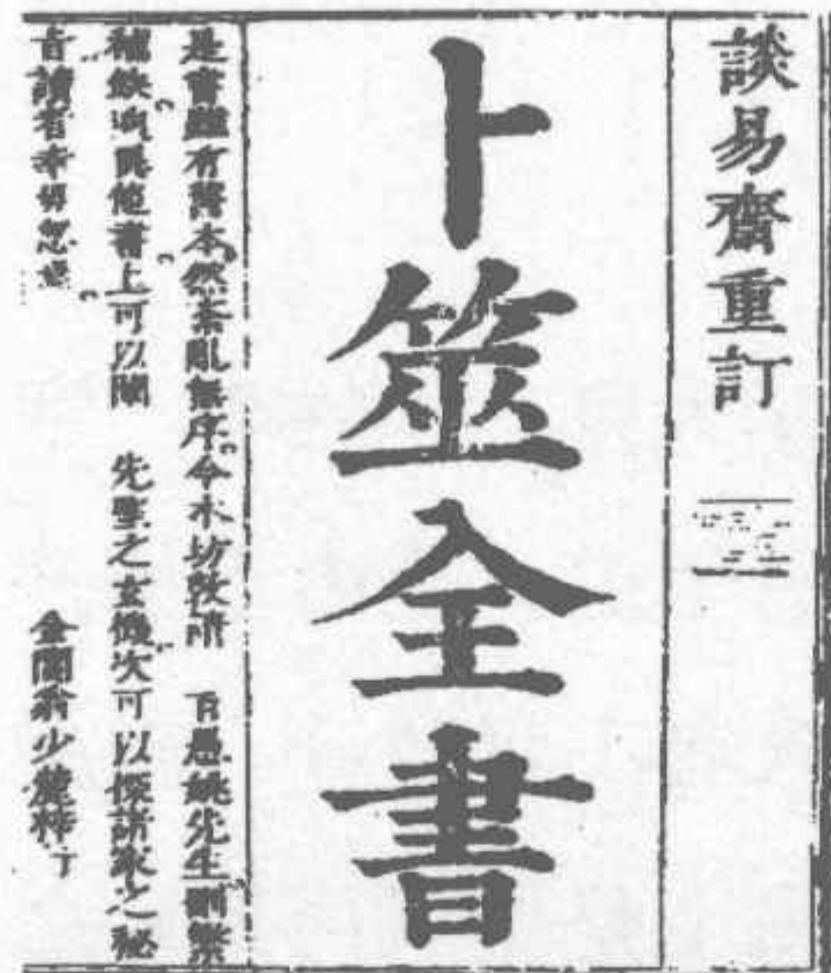 談易齋重訂
卜筮全書
是書雖有舊本然紊亂無序今本坊敦請 百愚姚先生刪繁
補缺迥異他書上可以闡 先聖之玄機次可以探諸家之秘
旨讀者幸毋忽焉
金閶翁少麓梓行